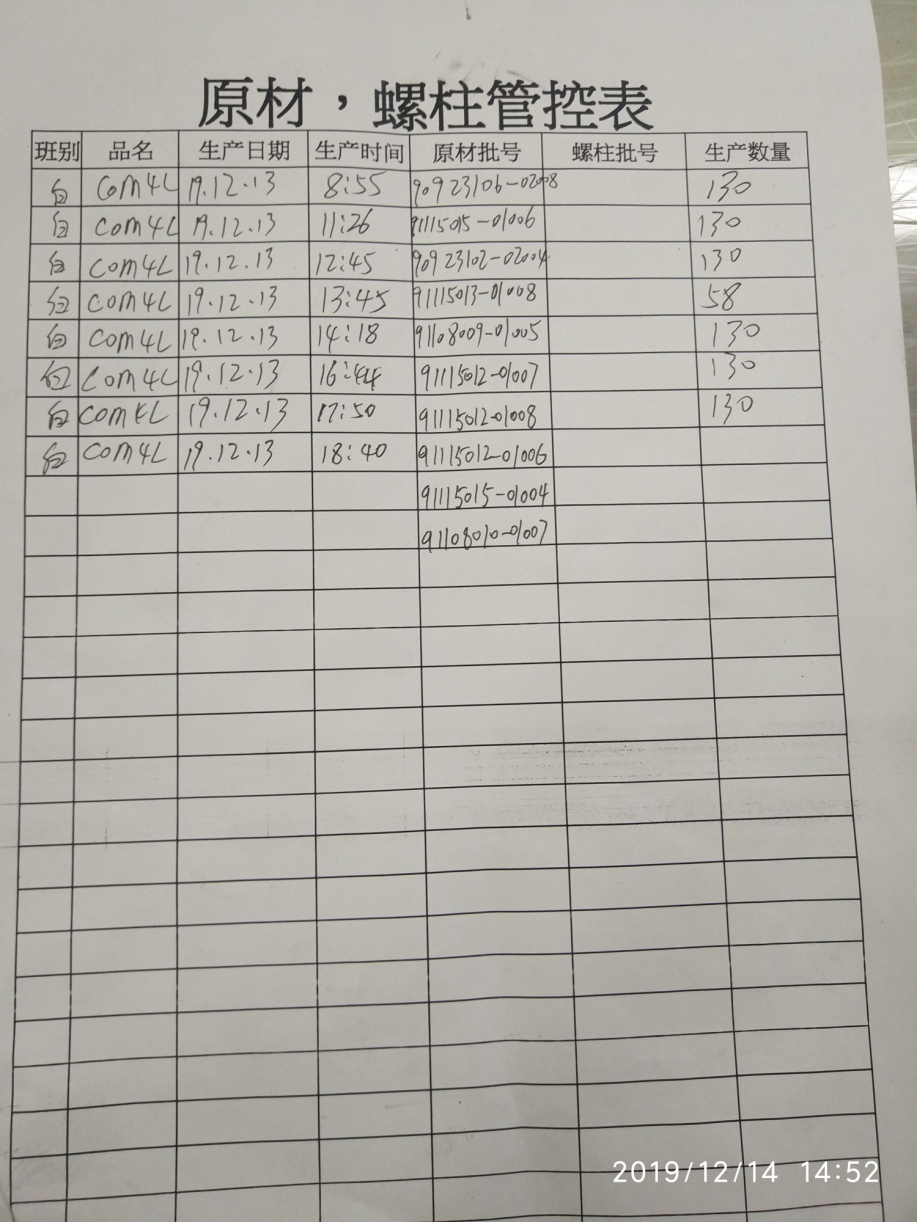 原材，螺柱管控表
班别 品名 生产日期 生产时间 原材批号 螺柱批号 生产数量
白 COM4L 19.12.13 8:55 90923106-02008 130
白 COM4L 19.12.13 11:26 91115015-01006 130
白 COM4L 19.12.13 12:45 90923102-02004 130
白 COM4L 19.12.13 13:45 91115013-01008 58
白 COM4L 19.12.13 14:18 91108009-01005 130
白 COM4L 19.12.13 16:44 91115012-01007 130
白 COM4L 19.12.13 17:50 91115012-01008 130
白 COM4L 19.12.13 18:40 91115012-01006
91115015-01004
91108010-01007
2019/12/14 14:52